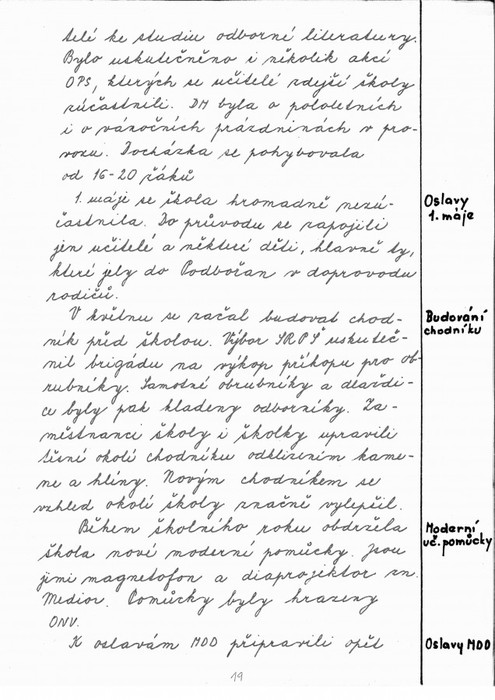 telé ke studiu odborné literatury.
Bylo uskutečněno i několik akcí
OPS, kterých se učitelé zdejší školy
zúčastnili. DM byla o pololetních
i o vánočních prázdninách v pro-
vozu. Docházka se pohybovala
od 16-20 žáků
1. máje se škola hromadně nezú-
častnila. Do průvodu se zapojili
jen učitelé a některé děti, hlavně ty,
které jely do Podbořan v doprovodu
rodičů.
Oslavy
1. máje
V květnu se začal budovat chod-
ník před školou. Výbor SRPŠ uskuteč-
nil brigádu na výkop příkopu pro ob-
rubníky. Samotné obrubníky a dlaždi-
ce byly pak kladeny odborníky. Za-
městnanci školy i školky upravili
těsné okolí chodníku odklizením kame-
ne a hlíny. Novým chodníkem se
vzhled okolí školy značně vylepšil.
Budování
chodníku
Během školního roku obdržela
škola nové moderní pomůcky. Jsou
jimi magnetofon a diaprojektor zn.
Medior. Pomůcky byly hrazeny
ONV.
Moderní
uč. pomůcky
K oslavám MDD připravili opět
Oslavy MDD
19